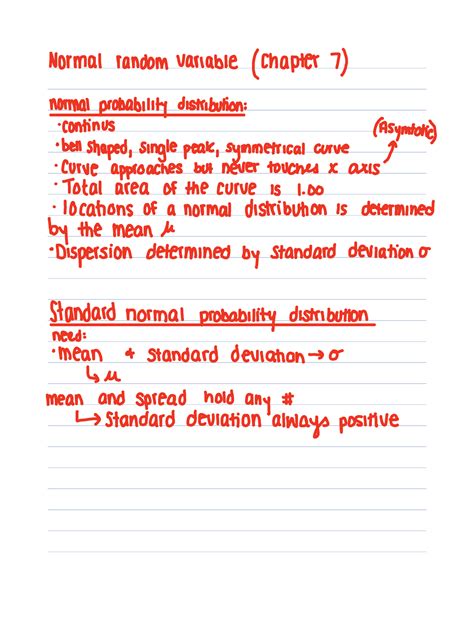 Normal random variable (Chapter 7)
normal probability distribution:
• continus
(Asymtotic)
• bell shaped, single peak, symmetrical curve
• Curve approaches but never touches x axis
• Total area of the curve is 1.00
• locations of a normal distribution is determined
by the mean μ
• Dispersion determined by standard deviation σ
Standard normal probability distribution
need:
• mean + standard deviation → σ
↳ μ
mean and spread hold any #
↳ Standard deviation always positive